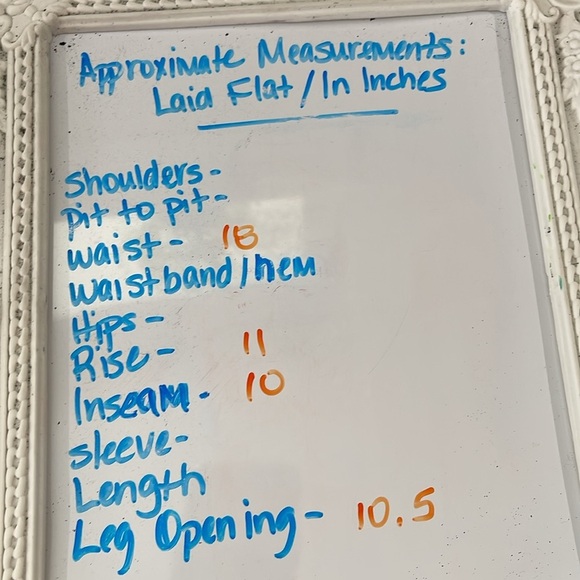 Approximate Measurements:
Laid Flat / In Inches
Shoulders -
pit to pit -
waist - 18
waistband / hem
Hips -
Rise - 11
Inseam - 10
sleeve -
Length
Leg Opening - 10.5